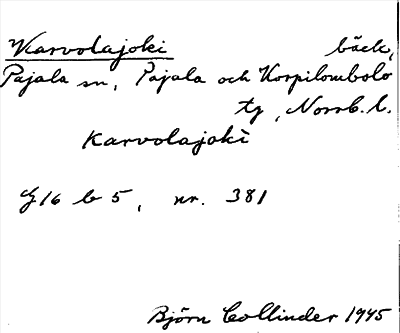 Karvolajoki bäck,
Pajala sn, Pajala och Korpilombolo
tg, Norrb. l.
Karvolajoki
G16 b 5, nr. 381
Björn Collinder 1945